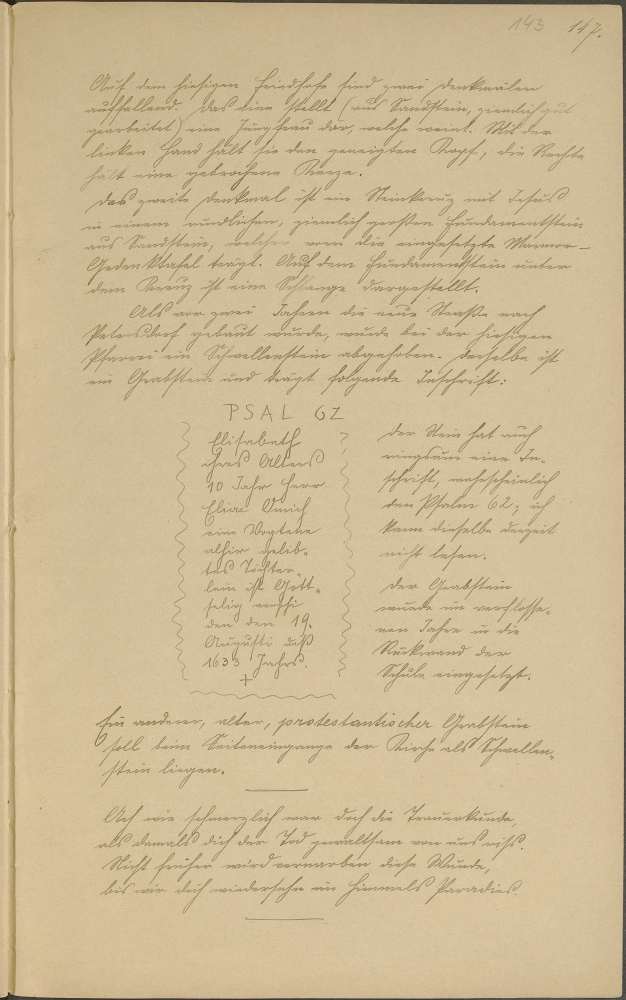 143 117.
Auf dem hiesigen Friedhofe sind zwei Denkmäler
auffallend. Das eine stellt (aus Sandstein, ziemlich gut
gearbeitet) eine Jungfrau dar, welche weint. Mit der
linken Hand hält sie den geneigten Kopf, die Rechte
hält eine gebrochene Kerze.
Das zweite Denkmal ist ein Steinkreuz mit Jesus
in einem rundlichen, ziemlich großen Fundamentstein
aus Sandstein, welcher vorn die eingesetzte Marmor-
Gedenktafel trägt. Auf dem Fundamentstein unter
dem Kreuz ist eine Schlange dargestellt.
Als vor zwei Jahren die neue Straße nach
Petersdorf gebaut wurde, wurde bei der hiesigen
Pfarrei ein Schwellenstein abgehoben. Derselbe ist
ein Grabstein und trägt folgende Inschrift:
PSAL 62
Elisabeth
ihres Alters
10 Jahr Herr
Eliae
eine
alhir gelib-
tes Töchter-
lein ist Gott-
selig
den den 19.
Augusti diß
1633 Jahrs.
+
Der Stein hat auch
ringsum eine In-
schrift, wahrscheinlich
den Psalm 62; ich
kann dieselbe derzeit
nicht lesen.
Der Grabstein
wurde im verflosse-
nen Jahre in die
Rückwand der
Schule eingesetzt.
Ein anderer, alter, protestantischer Grabstein
soll beim Seiteneingange der Kirche als Schwellen-
stein liegen.
Ach wie schmerzlich war doch die Trauerkunde,
als damals dich der Tod gewaltsam von uns riß.
Nicht früher wird vernarben diese Wunde,
bis wir dich wiedersehn im Himmels Paradies.